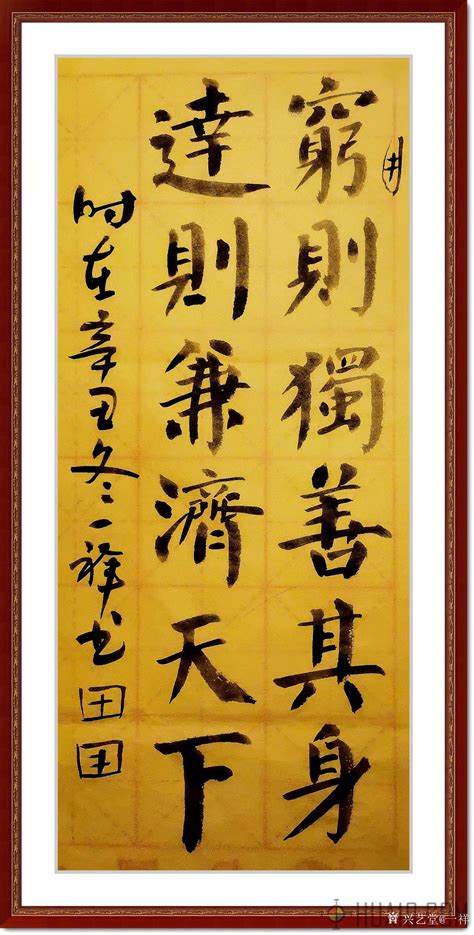 窮則獨善其身
達則兼濟天下
時在辛丑冬一祥书
HUMO.COM
兴艺堂@一祥